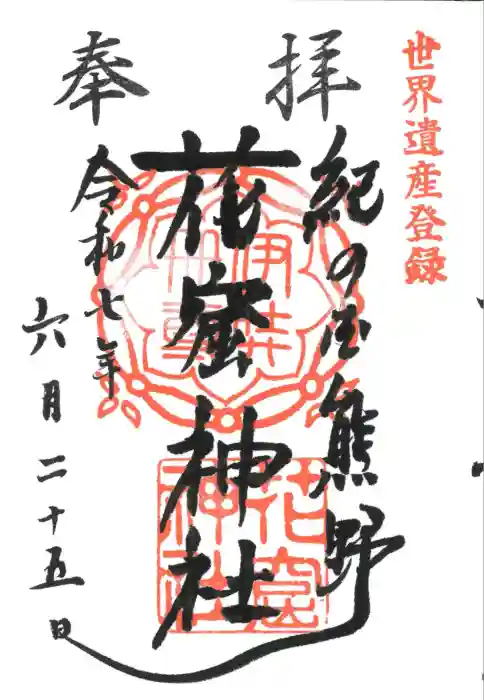 世界遺産登録
奉拝
紀の国熊野
花窟神社
令和七年
六月二十五日
花窟
神社